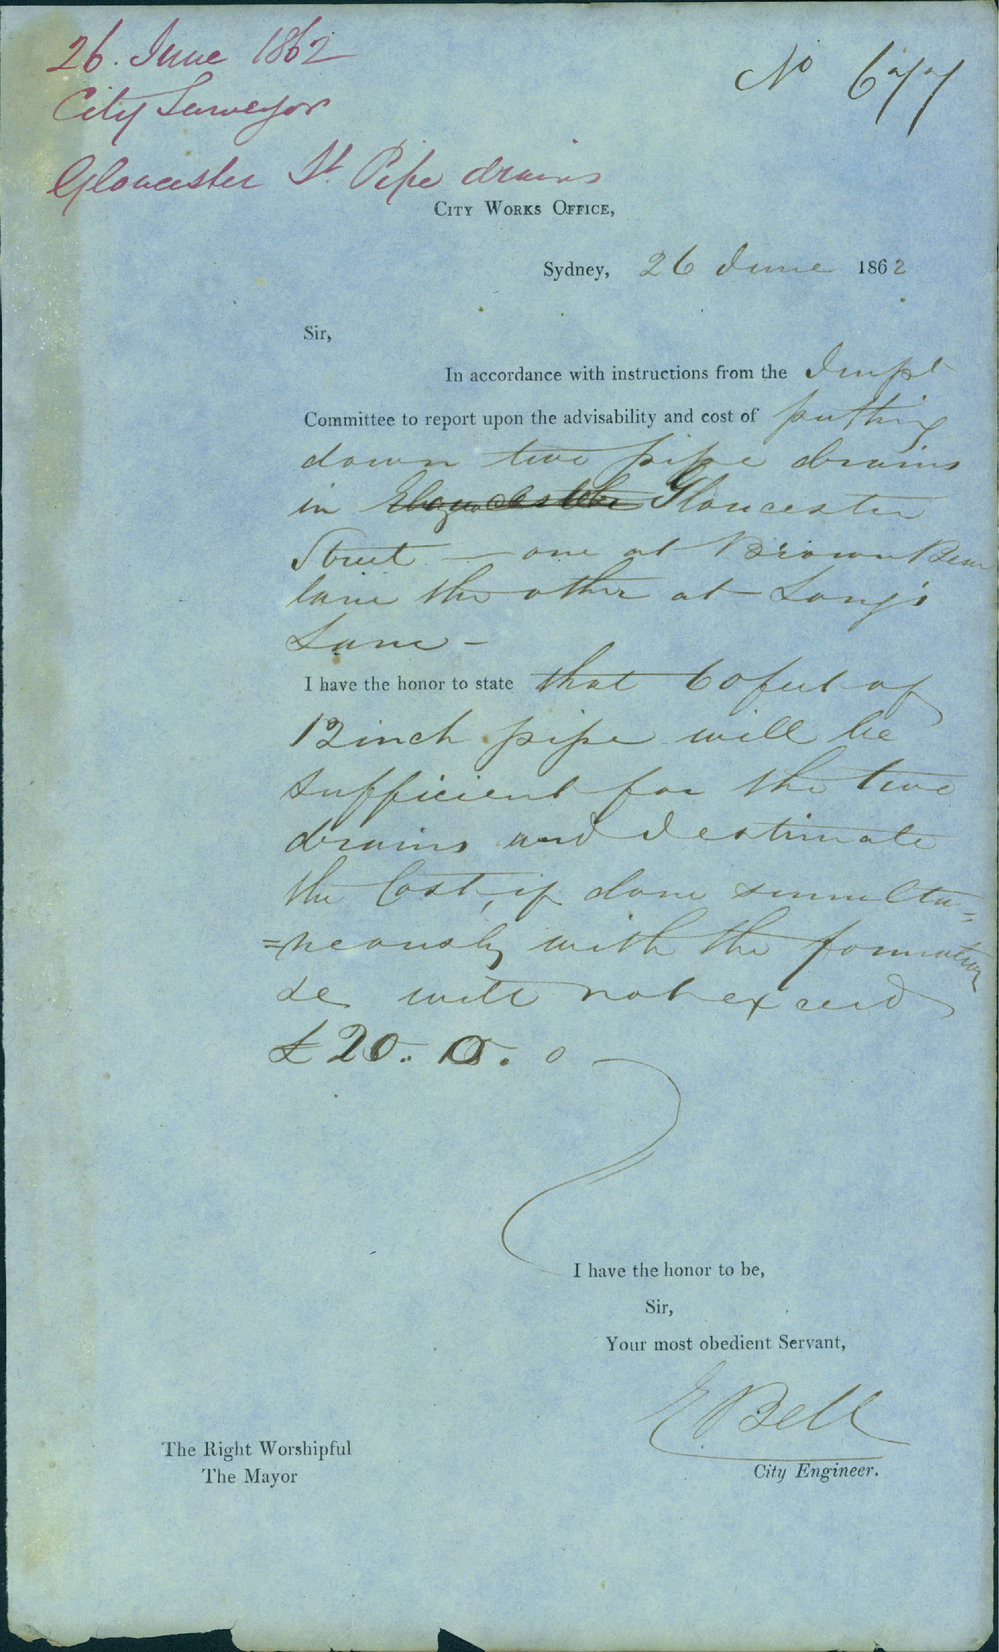 26. June 1862
No 677
City Surveyor
Gloucester St. Pipe drains
CITY WORKS OFFICE,
Sydney, 26 June 1862
Sir,
In accordance with instructions from the Impt
Committee to report upon the advisability and cost of putting
down two pipe drains
in Gloucester
Street – one at Brown Bear
lane the other at – Long's
Lane –
I have the honor to state that 60 feet of
12 inch pipe will be
sufficient for the two
drains and I estimate
the Cost, if done simulta=
=neously with the formation
&c will not exceed
£20..0.0
I have the honor to be,
Sir,
Your most obedient Servant,
E Bell
City Engineer.
The Right Worshipful
The Mayor